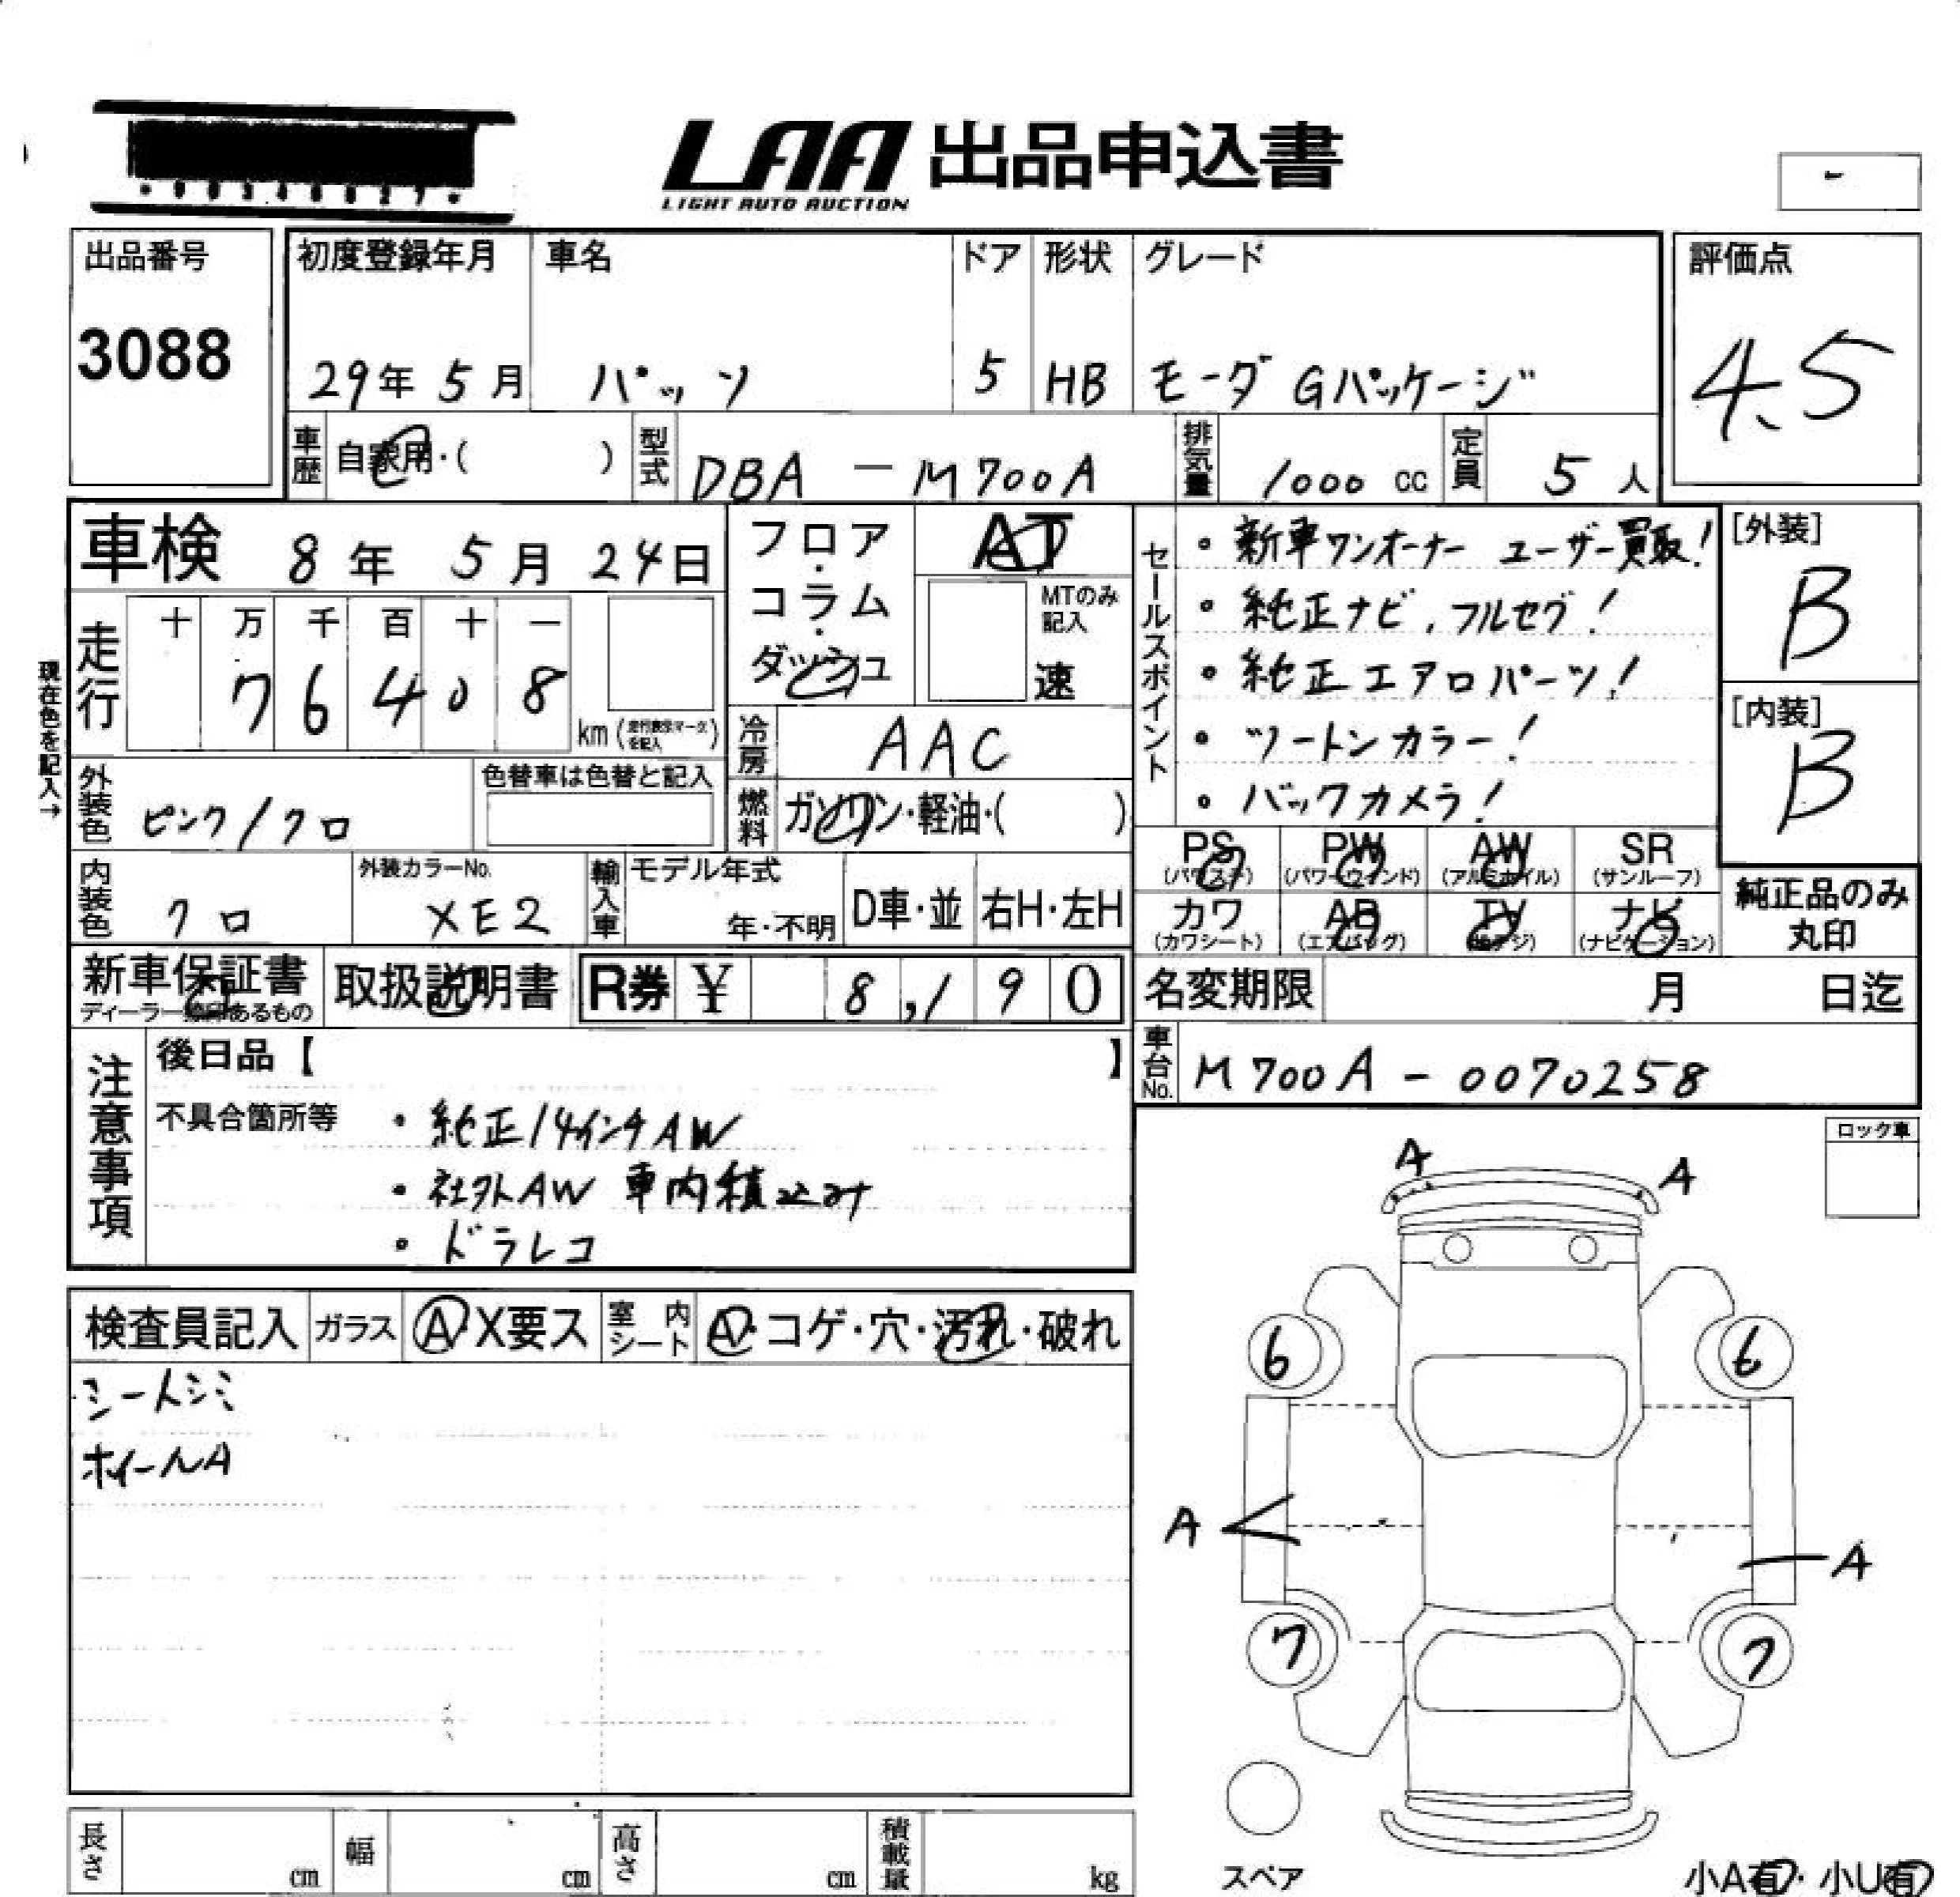 LAA 出品申込書
LIGHT AUTO AUCTION
-
出品番号
3088
初度登録年月
29年 5月
車名
パッソ
ドア
5
形状
HB
グレード
モーダ Gパッケージ
評価点
4.5
車歴 自家用・( )
型式 DBA - M700A
排気量 1000 cc
定員 5 人
車検 8年 5月 24日
現在色を記入→
走行
十 万 千 百 十 一
7 6 4 0 8
km (走行表示マークを記入)
フロア・コラム・ダッシュ
AT
MTのみ記入
速
冷房 AAC
燃料 ガソリン・軽油・( )
外装色 ピンク/クロ
色替車は色替と記入
内装色 クロ
外装カラーNo.
XE2
輸入車
モデル年式
年・不明
D車・並
右H・左H
新車保証書
取扱説明書
R券 ¥ 8,190
セールスポイント
・新車ワンオーナー ユーザー買取!
・純正ナビ, フルセグ!
・純正エアロパーツ!
・ツートンカラー!
・バックカメラ!
[外装]
B
[内装]
B
PS (パワステ)
PW (パワーウィンド)
AW (アルミホイル)
SR (サンルーフ)
カワ (カワシート)
AB (エアバッグ)
TV (地デジ)
ナビ (ナビゲーション)
純正品のみ
丸印
名変期限 月 日迄
車台No. M700A - 0070258
注意事項
後日品【 】
不具合箇所等
・純正14インチAW
・社外AW 車内積込み
・ドラレコ
ロック車
検査員記入
ガラス Ⓐ・X要ス
室内シート A・コゲ・穴・汚れ・破れ
シートシミ
ホイールA
A
A
6
6
A
A
7
7
スペア
長さ cm
幅 cm
高さ cm
積載量 kg
小A有・小U有